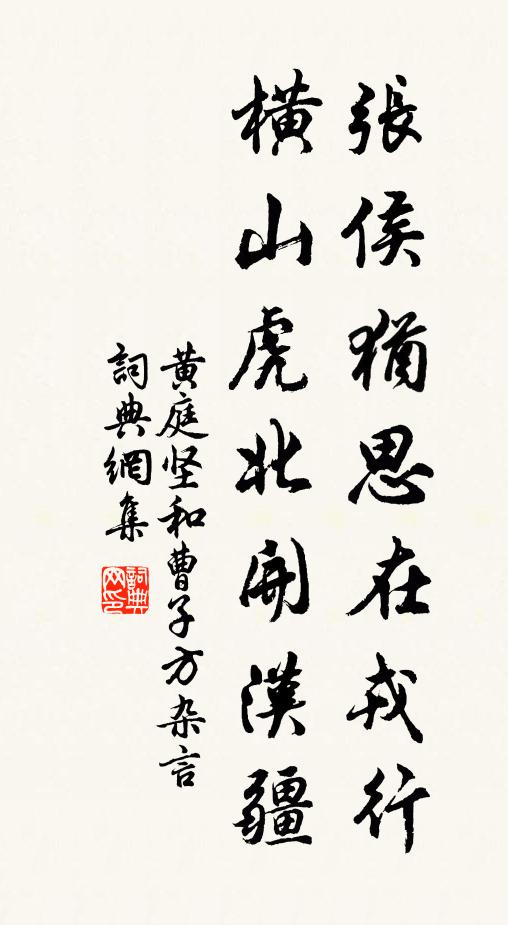 張侯猶思在戎行
橫山虎北開漢疆
黃庭坚和曹子方杂言
詞典網集
詞典网印